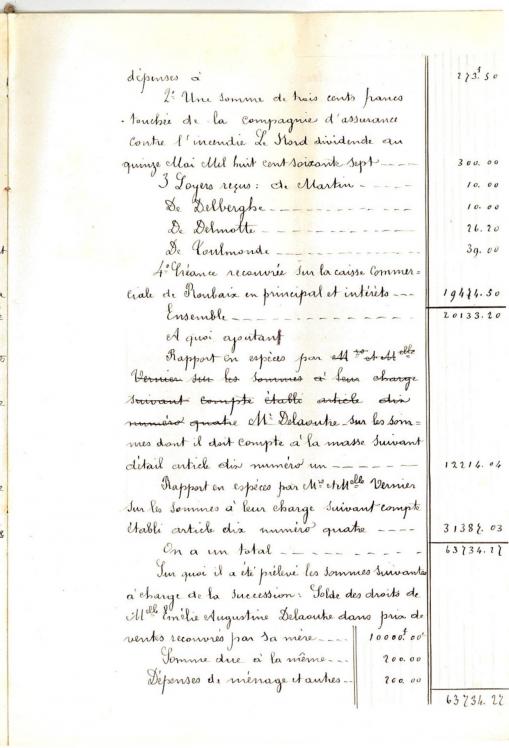 dépenses à 273f.50
2° Une somme de trois cents francs
touchée de la compagnie d'assurance
contre l'incendie Le Nord dividende au
quinze Mai Mel huit cent soixante sept ---- 300.00
3 Loyers reçus: de Martin ---- 10.00
De Delberghe ---- 10.00
De Delmotte ---- 26.20
De Toulmonde ---- 39.00
4° Créance recouvrée sur la caisse Commer=
ciale de Roubaix en principal et intérêts --- 19474.50
Ensemble ---- 20133.20
A quoi ajoutant
Rapport en espèces par Mr et Melle
Vernier sur les sommes à leur charge
suivant compte établi article dix
numéro quatre Mr Delaoutre sur les som=
mes dont il doit compte à la masse suivant
détail article dix numéro un ---- 12214.04
Rapport en espèces par Mr et Melle Vernier
sur les sommes à leur charge suivant compte
établi article dix numéro quatre ---- 31387.03
On a un total ---- 63734.27
Sur quoi il a été prélevé les sommes suivantes
à charge de la succession: Solde des droits de
Melle Emélie Augustine Delaoutre dans prix de
ventes recouvrés par sa mère ---- 10000f00
Somme due à la même --- 200.00
Dépenses de ménage et autres -- 200.00
63734.27